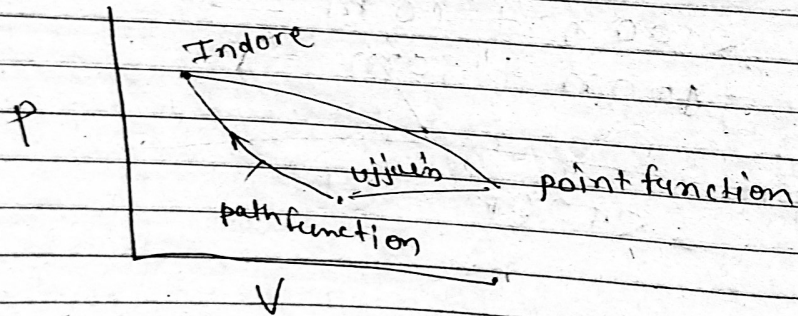 Indore
P
ujjain
point function
path function
V